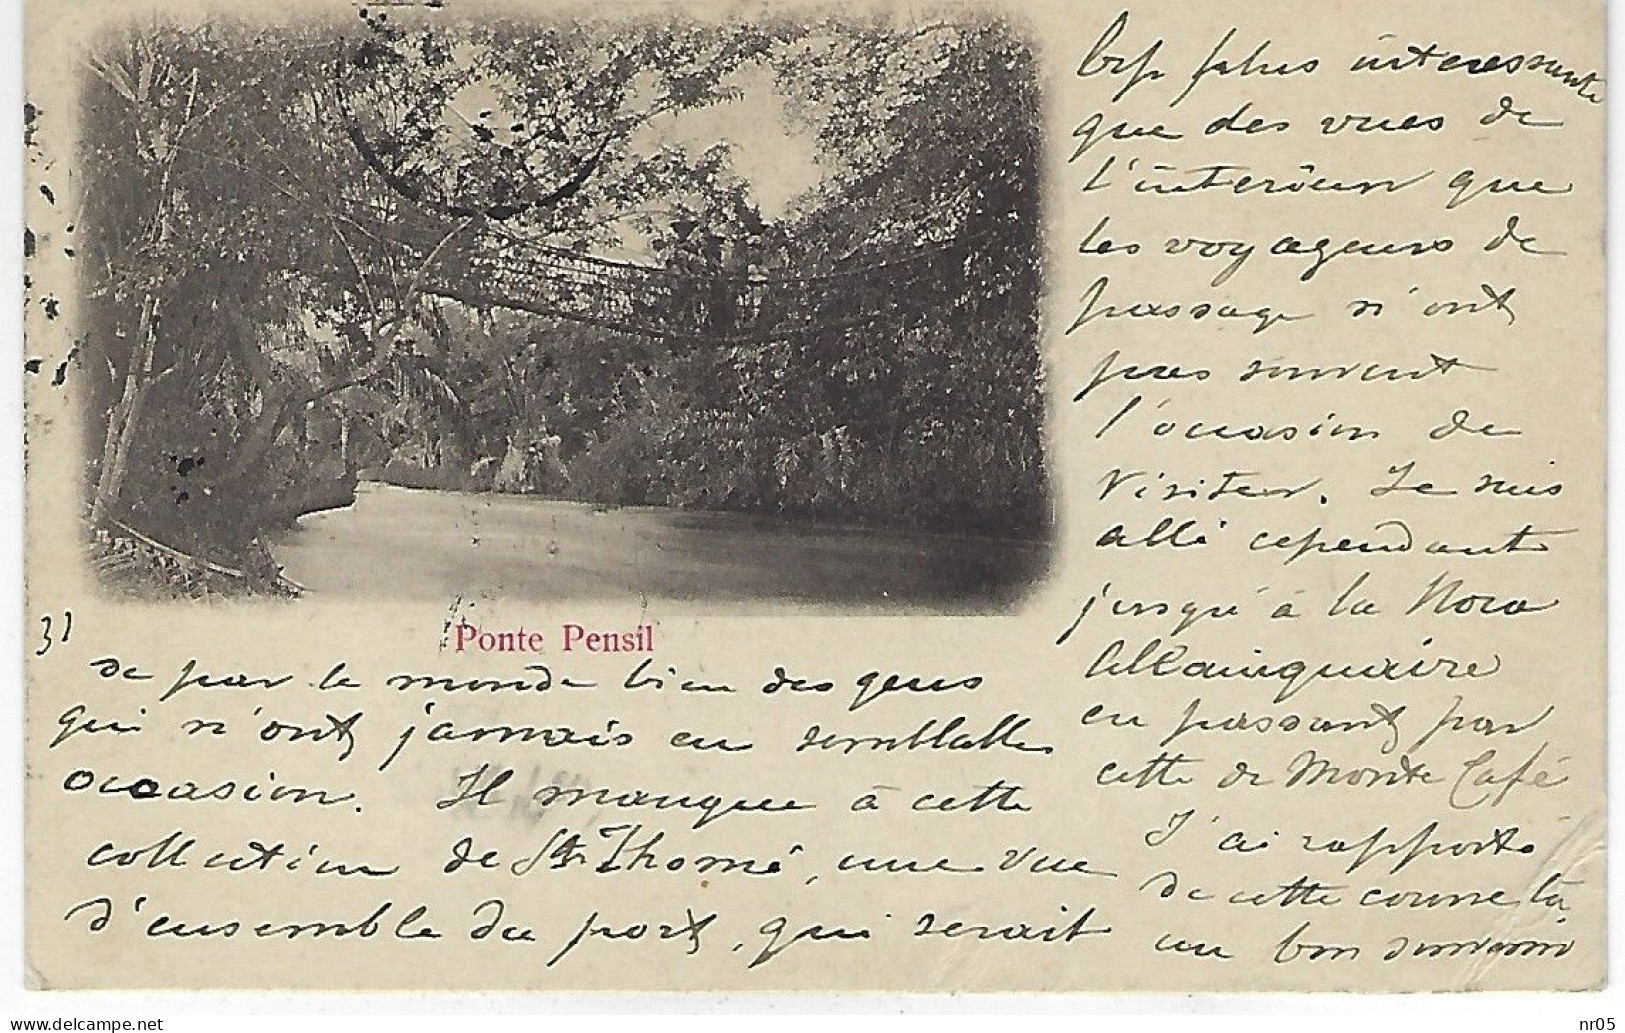 Ponte Pensil
31
de par le monde bien des gens
qui n'ont jamais eu semblable
occasion. Il manque à cette
collection de St Thomé, une vue
d'ensemble du port, qui serait
bcp plus intéressante
que des vues de
l'intérieur que
les voyageurs de
passage n'ont
pas souvent
l'occasion de
visiter. Je suis
allé cependant
jusqu'à la Nova
en passant par
cette de Monte Café
J'ai rapporté
de cette course là
un bon souvenir
www.delcampe.net
nr05